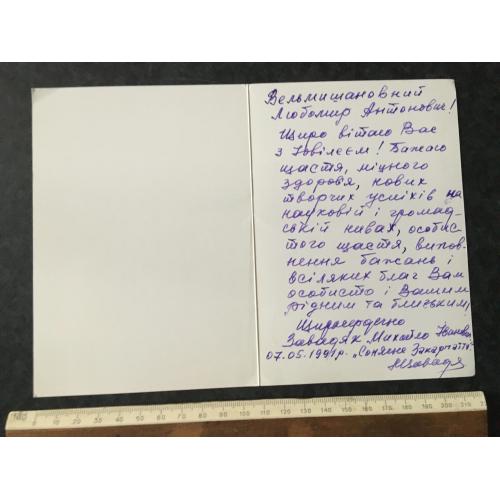 Вельмишановний
Любомир Антонович!
Щиро вітаю Вас
з Ювілеєм! Бажаю
щастя, міцного
здоров'я, нових
творчих успіхів на
науковій і громад-
ській нивах, особис-
того щастя, випов-
нення бажань і
всіляких благ Вам
особисто і Вашим
рідним та близьким,
Щиросердечно
Завадяк Михайло Іванович
07.05.1991р. „Сонячне Закарпаття"